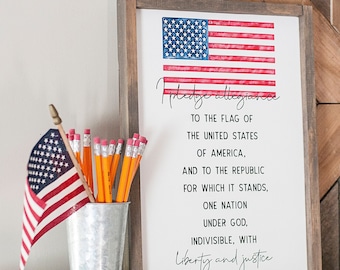 I pledge allegiance
TO THE FLAG OF
THE UNITED STATES
OF AMERICA,
AND TO THE REPUBLIC
FOR WHICH IT STANDS,
ONE NATION
UNDER GOD,
INDIVISIBLE, WITH
liberty and justice